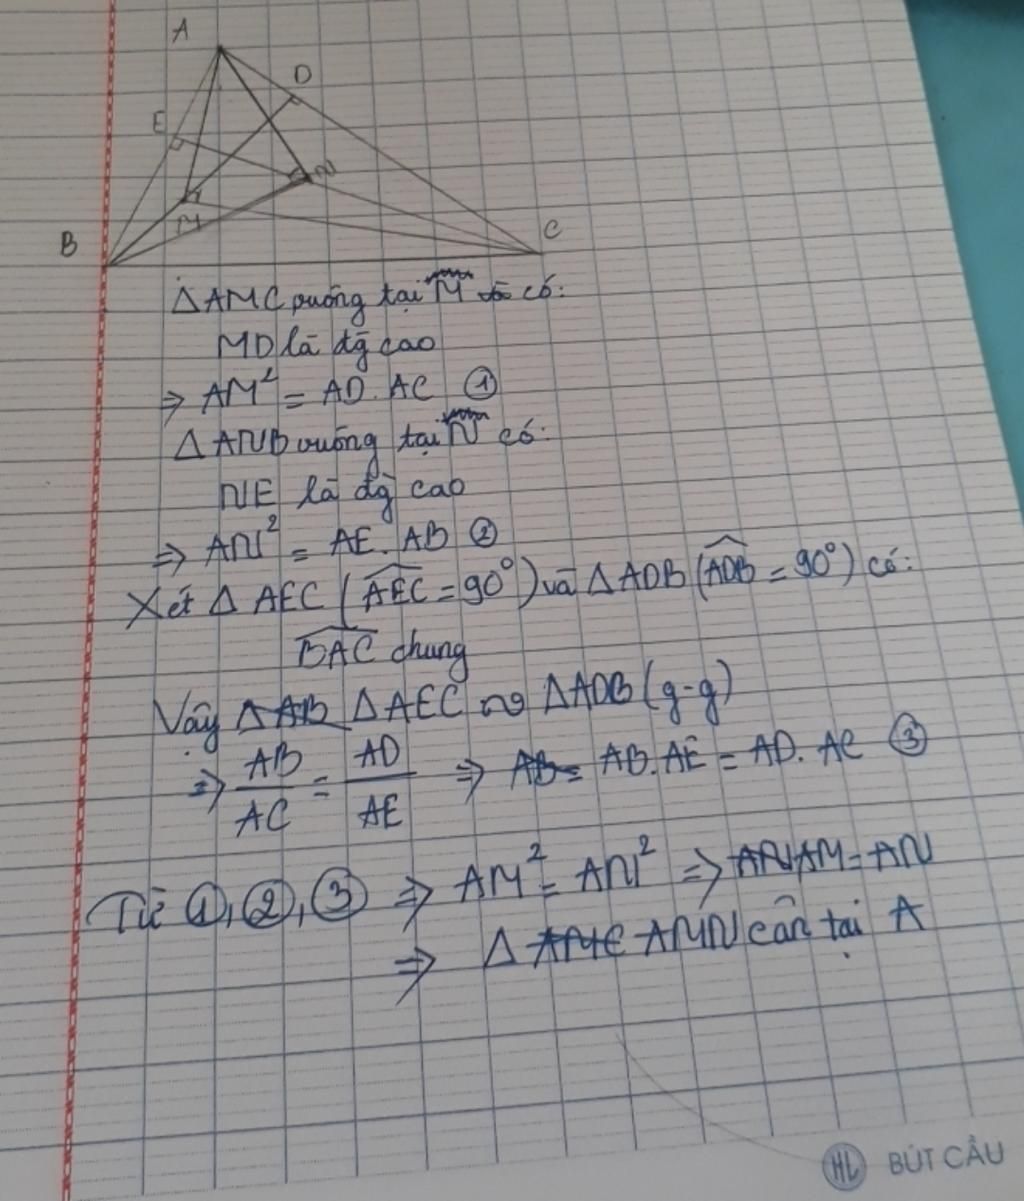 A
D
E
N
M
B
C
Δ AMC vuông tại M có:
MD là đg cao
⇒ AM² = AD. AC ①
Δ ANB vuông tại N có:
NE là đg cao
⇒ AN² = AE. AB ②
Xét Δ AEC (AEC = 90°) và Δ ADB (ADB = 90°) có:
BAC chung
Vậy Δ AB Δ AEC ∽ Δ ADB (g-g)
⇒ AB/AC = AD/AE ⇒ AB = AB. AE = AD. AC ③
Từ ①, ②, ③ ⇒ AM² = AN² ⇒ AN AM = AN
⇒ Δ AMC AMN cân tại A
HL BÚT CẦU